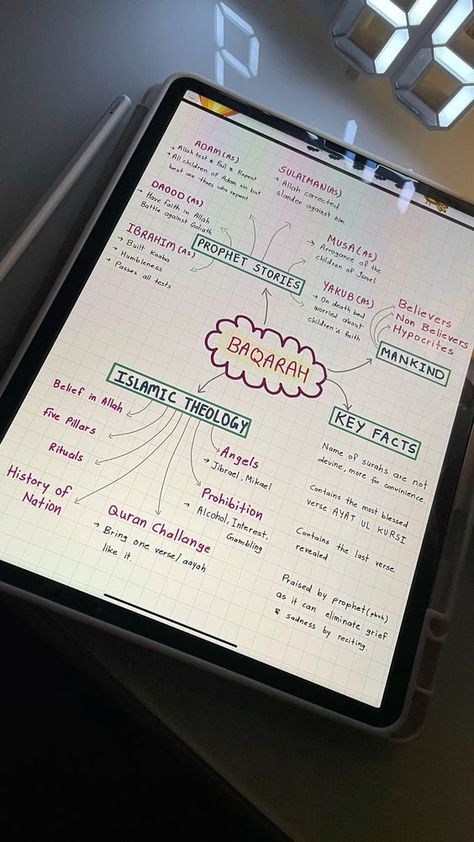 ADAM(AS)
→ Allah test & fail & Repent
→ All children of Adam sin but
best are those who repent
DAOOD (AS)
→ Have Faith in Allah
Battle against Goliath
IBRAHIM (AS)
→ Built Kaaba
→ Humbleness
→ Passes all tests
SULAIMAN(AS)
→ Allah corrected
slander against him
MUSA (AS)
→ Arrogance of the
children of Israel
YAKUB (AS)
→ On death bed
worried about
children's faith
PROPHET STORIES
BAQARAH
Believers
Non Believers
Hypocrites
MANKIND
ISLAMIC THEOLOGY
Belief in Allah
Five Pillars
Rituals
History of
Nation
Quran Challange
→ Bring one verse/aayah
like it.
Angels
→ Jibrael, Mikael
Prohibition
→ Alcohol, Interest,
Gambling
KEY FACTS
Name of surahs are not
devine, more for convinience.
Contains the most blessed
verse AYAT UL KURSI
Contains the last verse
revealed
Praised by prophet (pbuh)
as it can eliminate grief
& sadness by reciting.